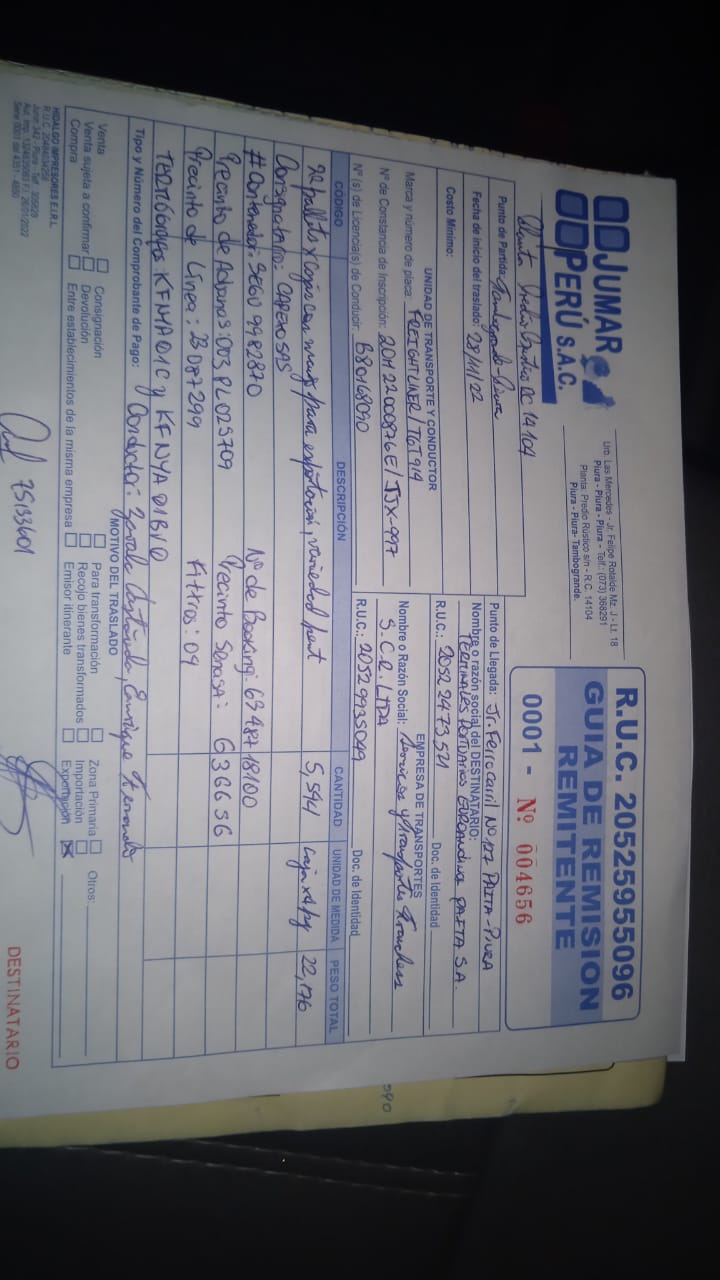 JUMAR
PERÚ S.A.C.
Urb. Las Mercedes - Jr. Felipe Rotalde Mz. J - Lt. 18
Piura - Piura - Piura - Telf.: (073) 368291
Planta: Predio Rústico s/n - R.C. 14104
Piura - Piura- Tambogrande.
R.U.C. 20525955096
GUIA DE REMISION
REMITENTE
0001 - Nº 004656
Planta Predio Rústico RC 14104
Punto de Partida: Tambogrande - Piura
Fecha de inicio del traslado: 28/11/22
Costo Mínimo:
Punto de Llegada: Jr. Ferrocarril Nº 127 PAITA-PIURA
Nombre o razón social del DESTINATARIO:
TERMINALES PORTUARIOS EUROANDINOS PAITA S.A.
R.U.C.: 20522473571 Doc. de Identidad
UNIDAD DE TRANSPORTE Y CONDUCTOR
Marca y número de placa: FREIGHTLINER / T6T914
Nº de Constancia de Inscripción: 20M22000876E / TJX-997
Nº (s) de Licencia(s) de Conducir: B80168090
EMPRESA DE TRANSPORTES
Nombre o Razón Social: Servicios y Transportes
S.C.R. LTDA
R.U.C.: 20529935049 Doc. de Identidad
CÓDIGO DESCRIPCIÓN CANTIDAD UNIDAD DE MEDIDA PESO TOTAL
22 pallets x Cajas con mango para exportación, variedad kent 5,544 Caja x 4kg 22,176
Consignatario: CAPEXO SAS
# Contenedor: SEGU 9982870 Nº de Booking: 6348718100
Precinto de Aduanas: 003PL025709 Precinto Senasa: 636656
Precinto de Línea: 23087299 Filtros: 09
Termógrafos: KFNYA01C y KFNYA01BV0
Tipo y Número del Comprobante de Pago: Conductor: Zavala Castañeda, Enrique Fernando
MOTIVO DEL TRASLADO
Venta
Venta sujeta a confirmar
Compra
Consignación
Devolución
Entre establecimientos de la misma empresa
Para transformación
Recojo bienes transformados
Emisor itinerante
Zona Primaria
Importación
Exportación X
Otros:
HIDALGO IMPRESORES E.I.R.L.
75133601
DESTINATARIO